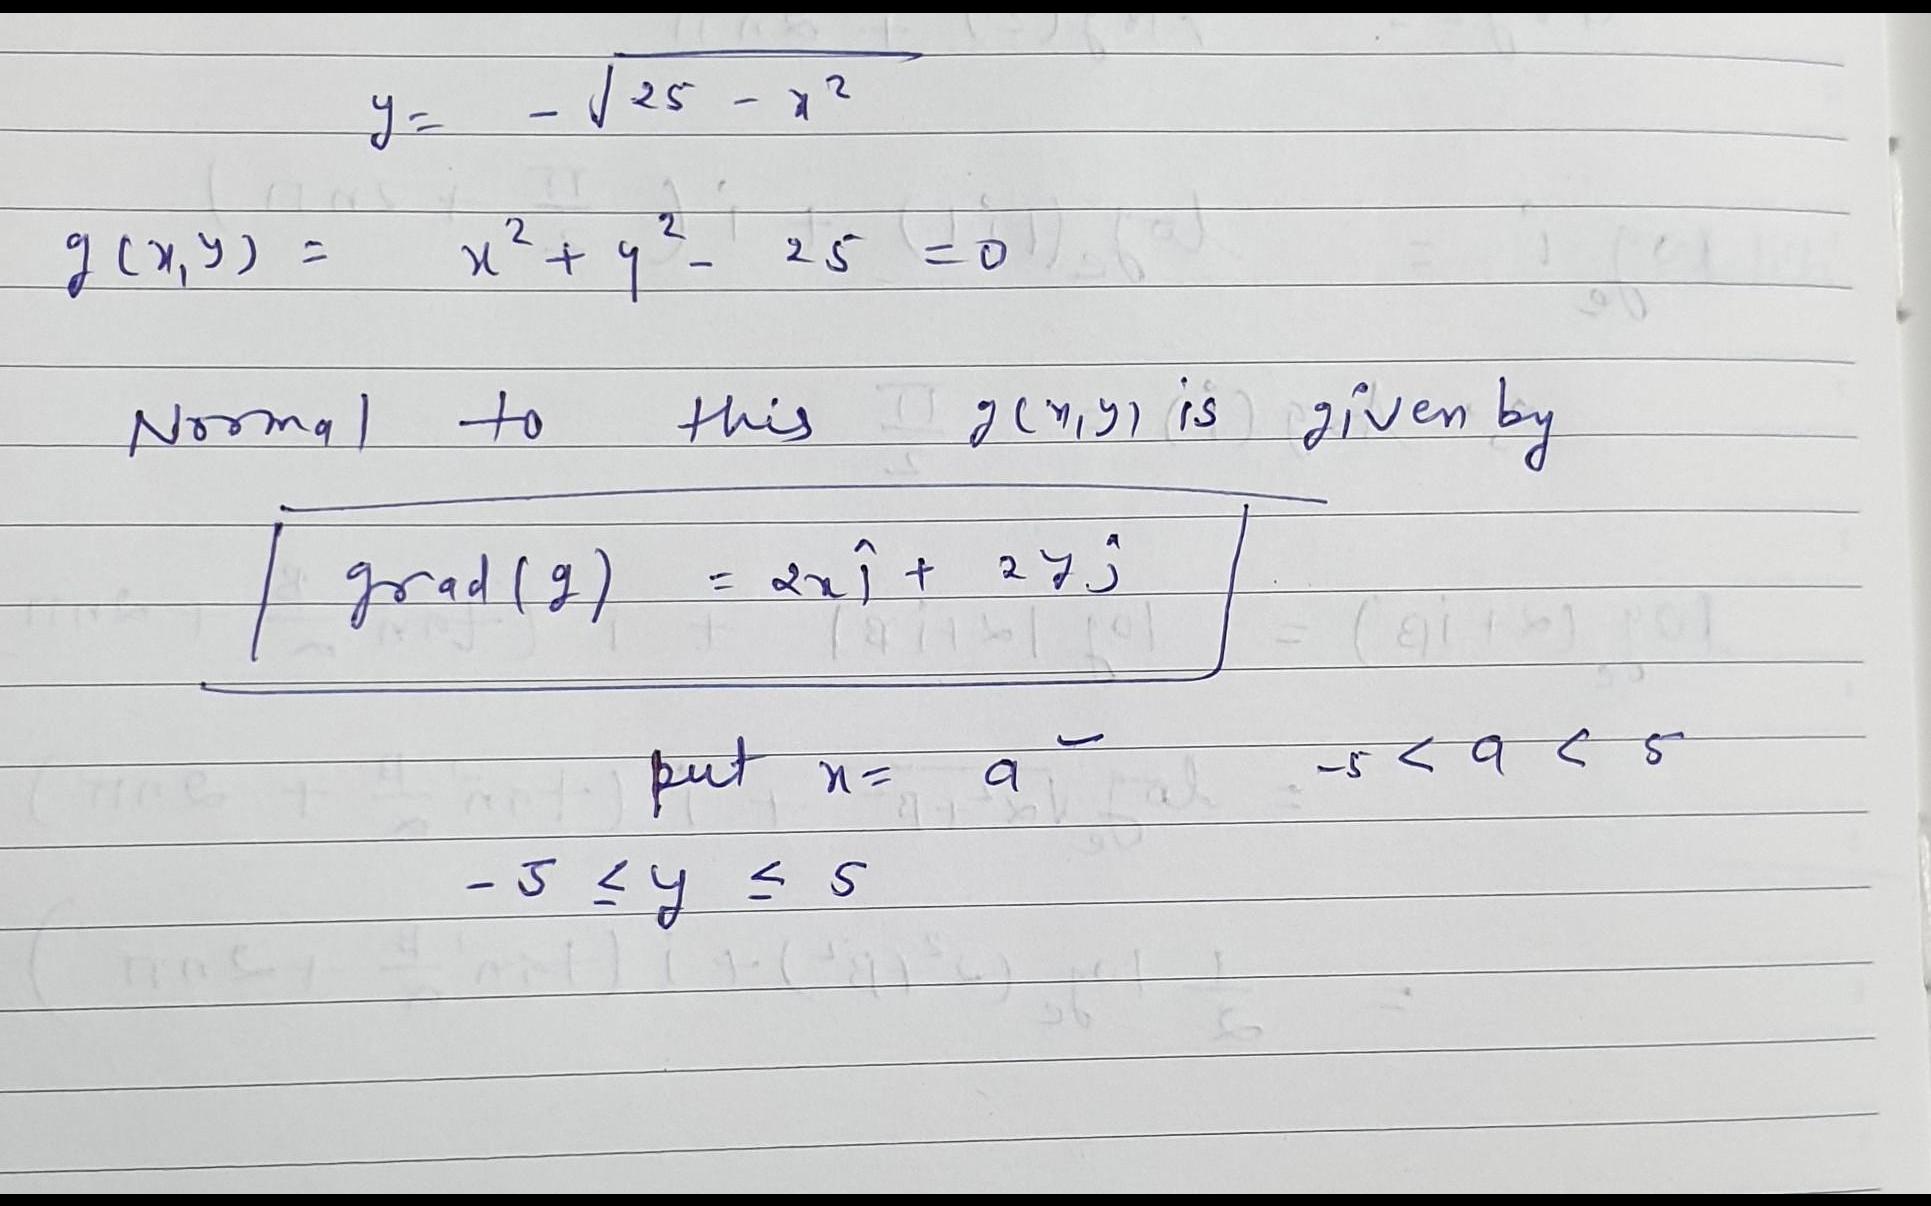 y = -√25 - x²
g(x,y) = x² + y² - 25 = 0
Normal to this g(x,y) is given by
grad(g) = 2xĵ + 2yĵ
put x = a -5 < a < 5
-5 ≤ y ≤ 5